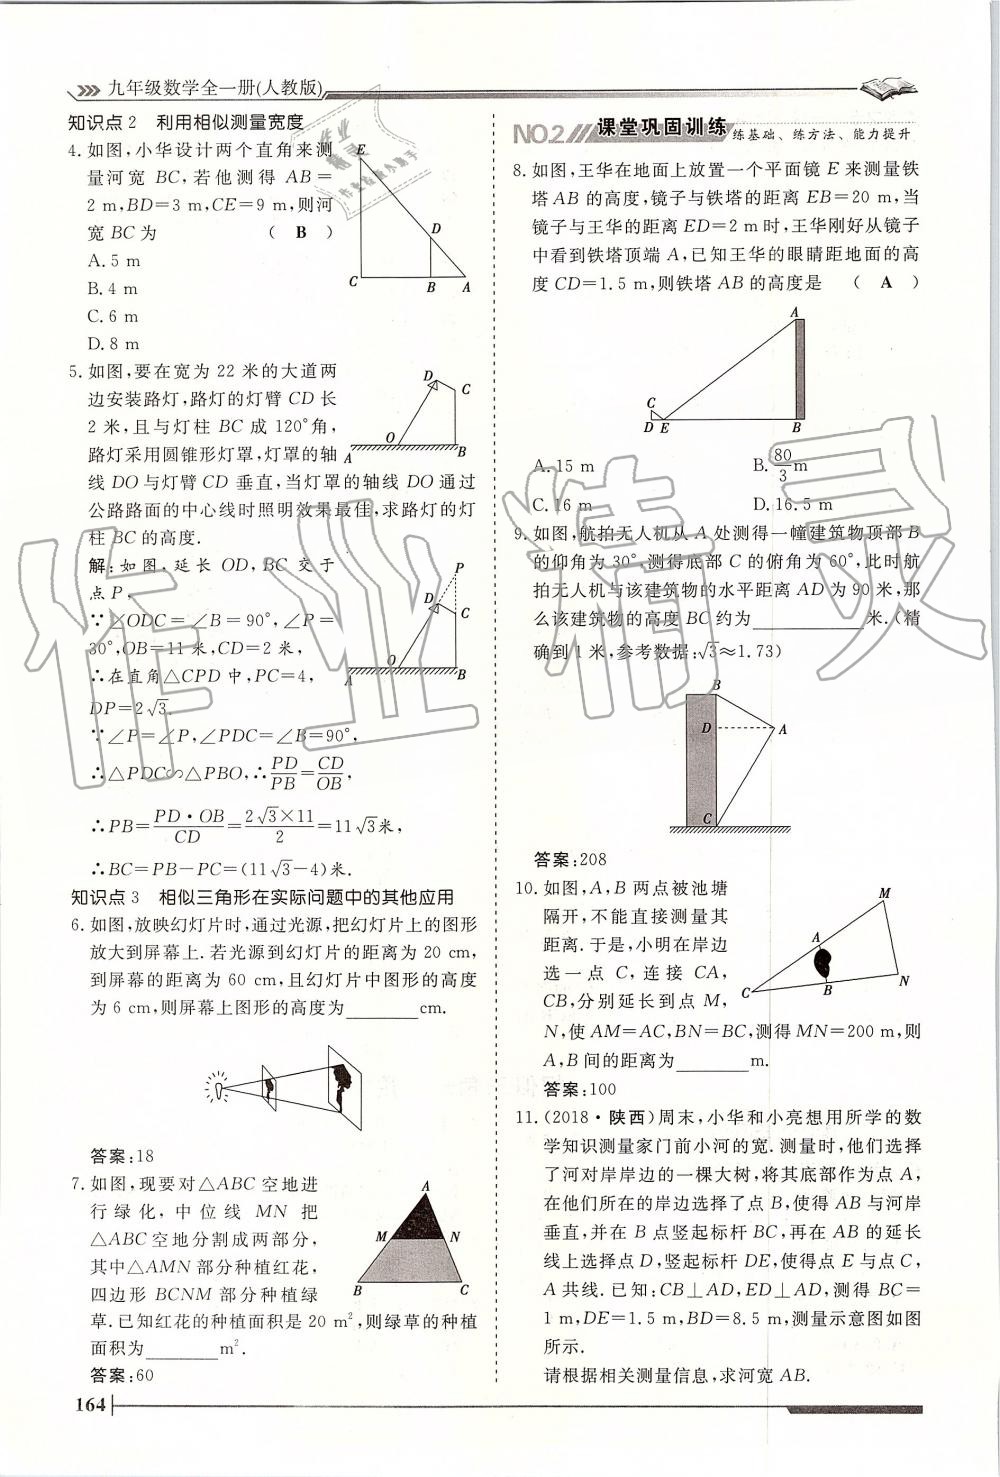 九年级数学全一册(人教版)
知识点2　利用相似测量宽度
4.如图,小华设计两个直角来测
量河宽 BC,若他测得 AB=
2 m,BD=3 m,CE=9 m,则河
宽 BC 为　（ B ）
A.5 m
B.4 m
C.6 m
D.8 m
E
D
C B A
5.如图,要在宽为 22 米的大道两
边安装路灯,路灯的灯臂 CD 长
2 米,且与灯柱 BC 成 120°角,
路灯采用圆锥形灯罩,灯罩的轴
线 DO 与灯臂 CD 垂直,当灯罩的轴线 DO 通过
公路路面的中心线时照明效果最佳,求路灯的灯
柱 BC 的高度.
D
C
O
A B
解:如图,延长 OD,BC 交于
点 P,
∵∠ODC=∠B=90°,∠P=
30°,OB=11 米,CD=2 米,
∴在直角△CPD 中,PC=4,
DP=2√3.
∵∠P=∠P,∠PDC=∠B=90°,
∴△PDC∽△PBO,∴PD/PB=CD/OB,
∴PB=PD·OB/CD=2√3×11/2=11√3米,
∴BC=PB−PC=(11√3−4)米.
P
D
C
O
A B
知识点3　相似三角形在实际问题中的其他应用
6.如图,放映幻灯片时,通过光源,把幻灯片上的图形
放大到屏幕上.若光源到幻灯片的距离为 20 cm,
到屏幕的距离为 60 cm,且幻灯片中图形的高度
为 6 cm,则屏幕上图形的高度为________cm.
答案:18
7.如图,现要对△ABC 空地进
行绿化,中位线 MN 把
△ABC 空地分割成两部分,
其中△AMN 部分种植红花,
四边形 BCNM 部分种植绿
草.已知红花的种植面积是 20 m²,则绿草的种植
面积为________m².
A
M N
B C
答案:60
164
NO.2 课堂巩固训练 练基础、练方法、能力提升
8.如图,王华在地面上放置一个平面镜 E 来测量铁
塔 AB 的高度,镜子与铁塔的距离 EB=20 m,当
镜子与王华的距离 ED=2 m 时,王华刚好从镜子
中看到铁塔顶端 A,已知王华的眼睛距地面的高
度 CD=1.5 m,则铁塔 AB 的高度是　（ A ）
A
C
D E B
A.15 m　B.80/3 m
C.16 m　D.16.5 m
9.如图,航拍无人机从 A 处测得一幢建筑物顶部 B
的仰角为 30°,测得底部 C 的俯角为 60°,此时航
拍无人机与该建筑物的水平距离 AD 为 90 米,那
么该建筑物的高度 BC 约为____________米.(精
确到 1 米,参考数据:√3≈1.73)
B
D A
C
答案:208
10.如图,A,B 两点被池塘
隔开,不能直接测量其
距离.于是,小明在岸边
选一点 C,连接 CA,
CB,分别延长到点 M,
N,使 AM=AC,BN=BC,测得 MN=200 m,则
A,B 间的距离为________m.
M
A
C B N
答案:100
11.(2018·陕西)周末,小华和小亮想用所学的数
学知识测量家门前小河的宽.测量时,他们选择
了河对岸岸边的一棵大树,将其底部作为点 A,
在他们所在的岸边选择了点 B,使得 AB 与河岸
垂直,并在 B 点竖起标杆 BC,再在 AB 的延长
线上选择点 D,竖起标杆 DE,使得点 E 与点 C,
A 共线.已知:CB⊥AD,ED⊥AD,测得 BC=
1 m,DE=1.5 m,BD=8.5 m,测量示意图如图
所示.
请根据相关测量信息,求河宽 AB.
作业精灵